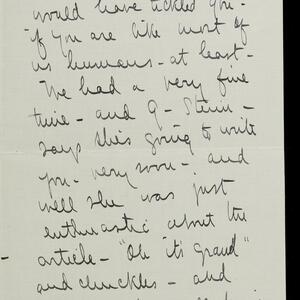 would have tickled you -
if you are like most of
us humans - at least -
We had a very fine
time - and G - Stein -
says she's going to write
you - very soon - and
well she was just
enthusiastic about the
article - "Oh it's grand"
and chuckles - and